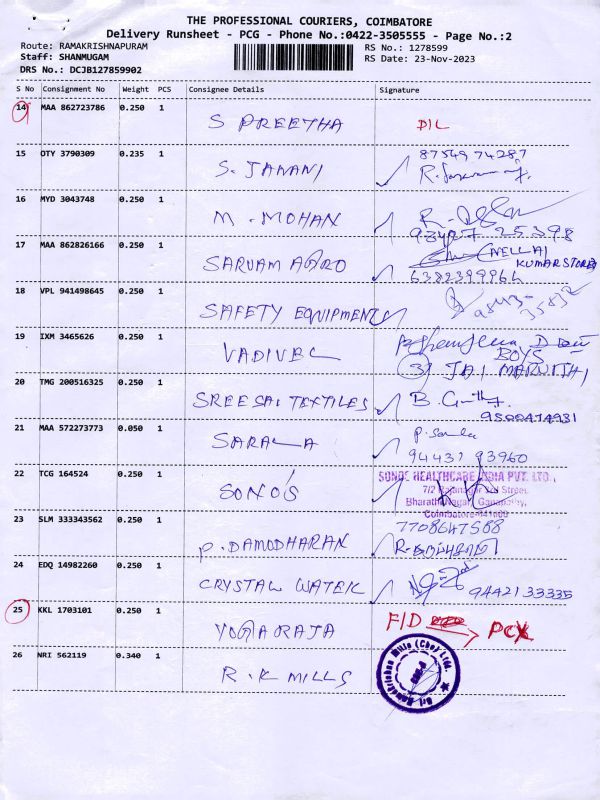 THE PROFESSIONAL COURIERS, COIMBATORE
Delivery Runsheet - PCG - Phone No.:0422-3505555 - Page No.:2
Route: RAMAKRISHNAPURAM RS No.: 1278599
Staff: SHANMUGAM RS Date: 23-Nov-2023
DRS No.: DCJB127859902
S No Consignment No Weight PCS Consignee Details Signature
14 MAA 862723786 0.250 1
S PREETHA D/L
15 OTY 3790309 0.235 1 87549 74287
S. JANANI R.
16 MYD 3043748 0.250 1
M. MOHAN R.
17 MAA 862826166 0.250 1 (NELLAI
SARVAM AGRO KUMAR STORES
6382399966
18 VPL 941498645 0.250 1
SAFETY EQUIPMENTS 35832
19 IXM 3465626 0.250 1
VADIVEL BOYS
JAI MARUTHI
20 TMG 200516325 0.250 1
SREE SAI TEXTILES B.
9500474931
21 MAA 572273773 0.050 1 P.
SARALA 94431 93960
22 TCG 164524 0.250 1 SONOS HEALTHCARE INDIA PVT. LTD.,
SONO'S 7/2 Rajanagar 3rd Street,
Bharathi Nagar, Ganapathy,
Coimbatore-641006
23 SLM 333343562 0.250 1 7708647588
P. DAMODHARAN R.
24 EDQ 14982260 0.250 1
CRYSTAL WATER 9442133335
25 KKL 1703101 0.250 1 F/D
YOGARAJA
26 NRI 562119 0.340 1 Sri Ramakrishna Mills (Cbe) Ltd.
R. K MILLS